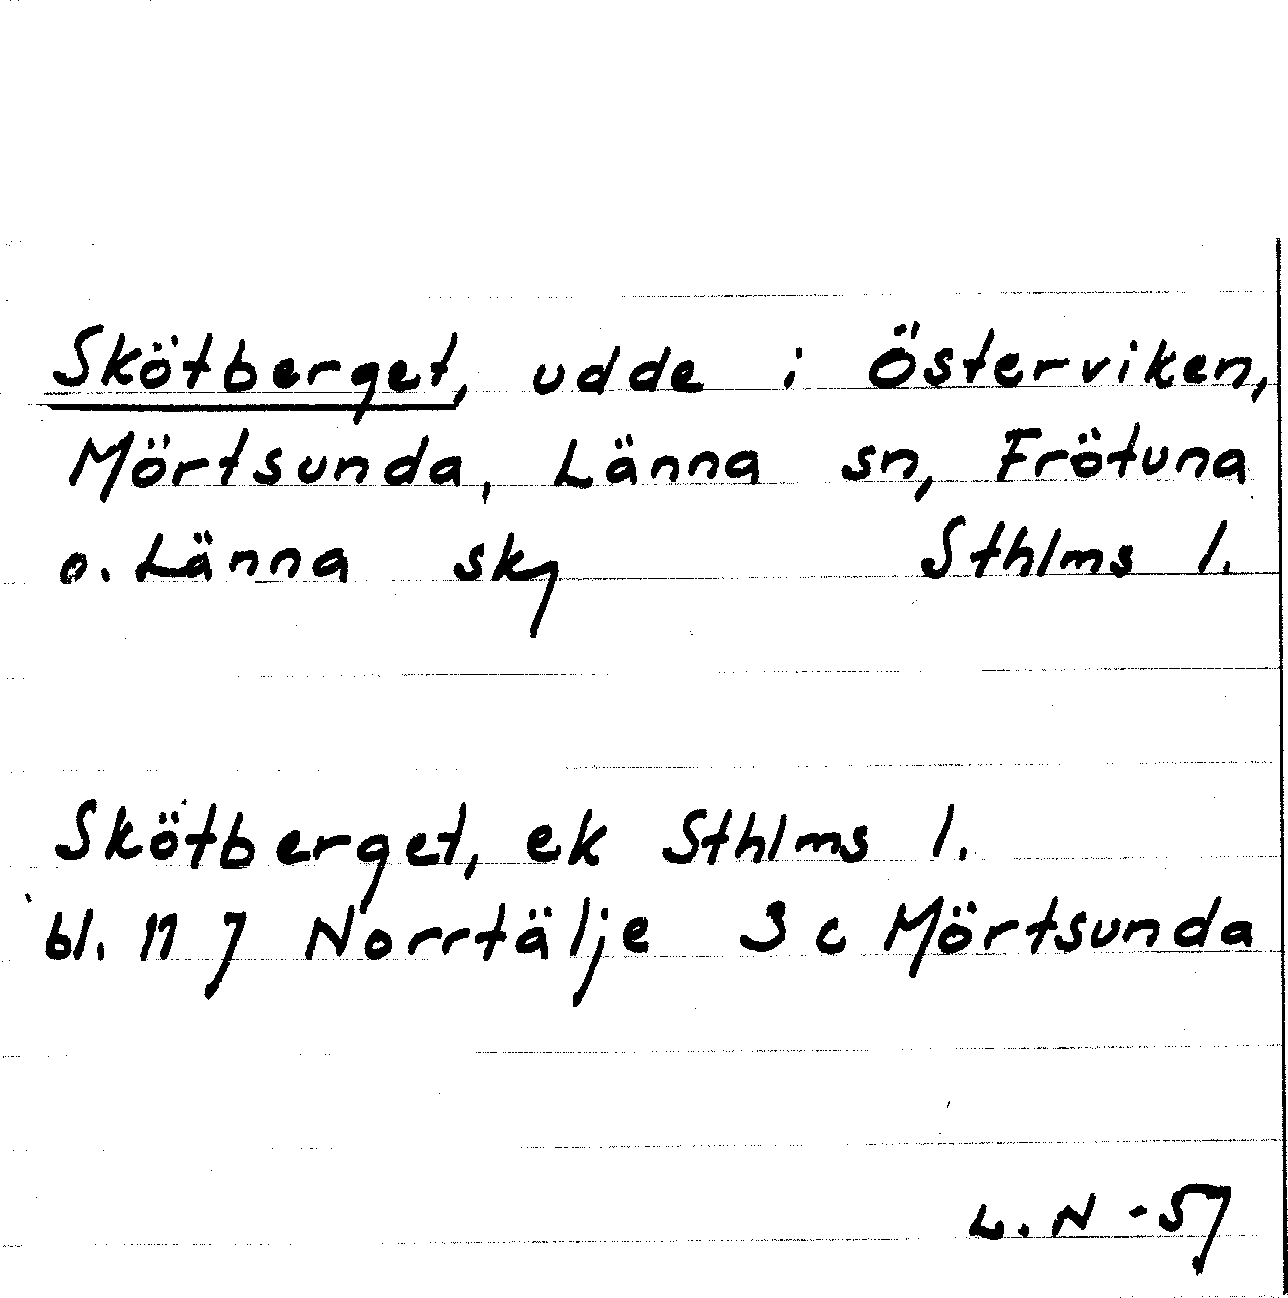 Skötberget, udde i Österviken,
Mörtsunda, Länna sn, Frötuna
o. Länna skg Sthlms l.
Skötberget, ek Sthlms l.
bl. 11 7 Norrtälje 3 c Mörtsunda
L. N - 57